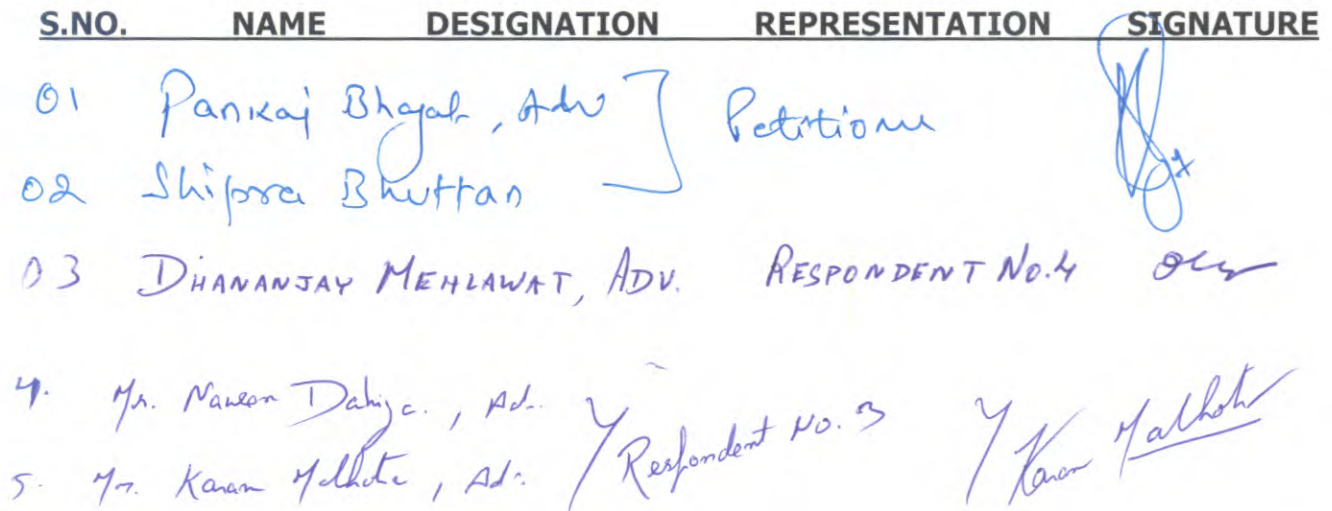 S.NO. NAME DESIGNATION REPRESENTATION SIGNATURE
01 Pankaj , Adv Petitioner
02 Shipra Bhuttan
03 DHANANJAY MEHLAWAT, ADV. RESPONDENT No.4
4. Mr. Naveen Dahiya , Adv. Respondent No. 3 Karan Malhotra
5. Mr. Karan Malhotra , Adv.